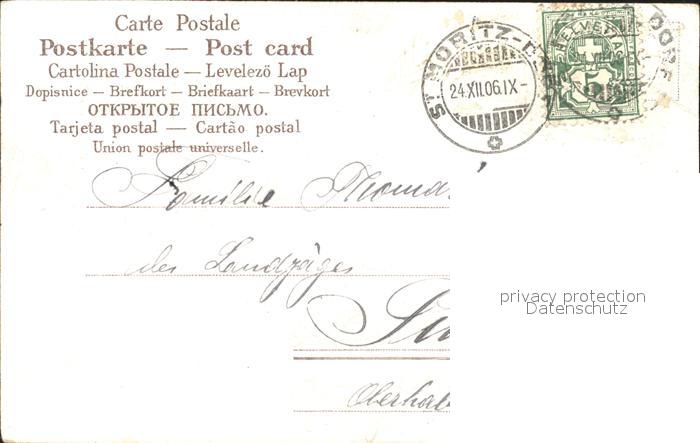 Carte Postale
Postkarte — Post card
Cartolina Postale — Levelező Lap
Dopisnice — Brefkort — Briefkaart — Brevkort
ОТКРЫТОЕ ПИСЬМО.
Tarjeta postal — Cartão postal
Union postale universelle.
ST MORITZ-D
24.XII.06.IX-
HELVETIA
5
DORF
Familie Thoma
des Landjägers
privacy protection
Datenschutz
Oberhal